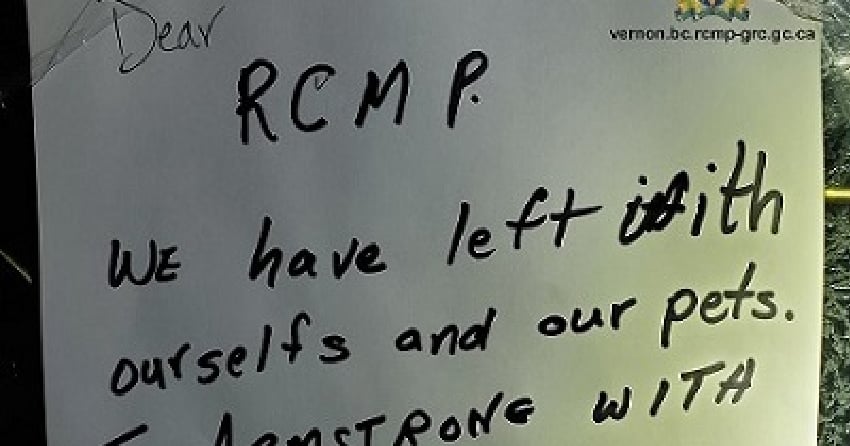 Dear
vernon.bc.rcmp-grc.gc.ca
RCMP.
WE have left with
ourselfs and our pets.
ARMSTRONG WITH